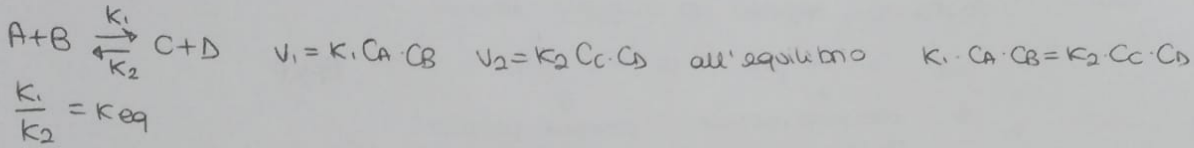 A+B ⇌ C+D K₁ K₂ V₁ = K₁ CA · CB V₂ = K₂ CC · CD all'equilibrio K₁ · CA · CB = K₂ · CC · CD
K₁/K₂ = Keq